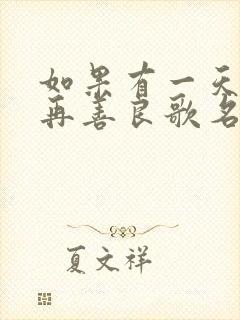 如果有一天
再善良歌名
夏文祥